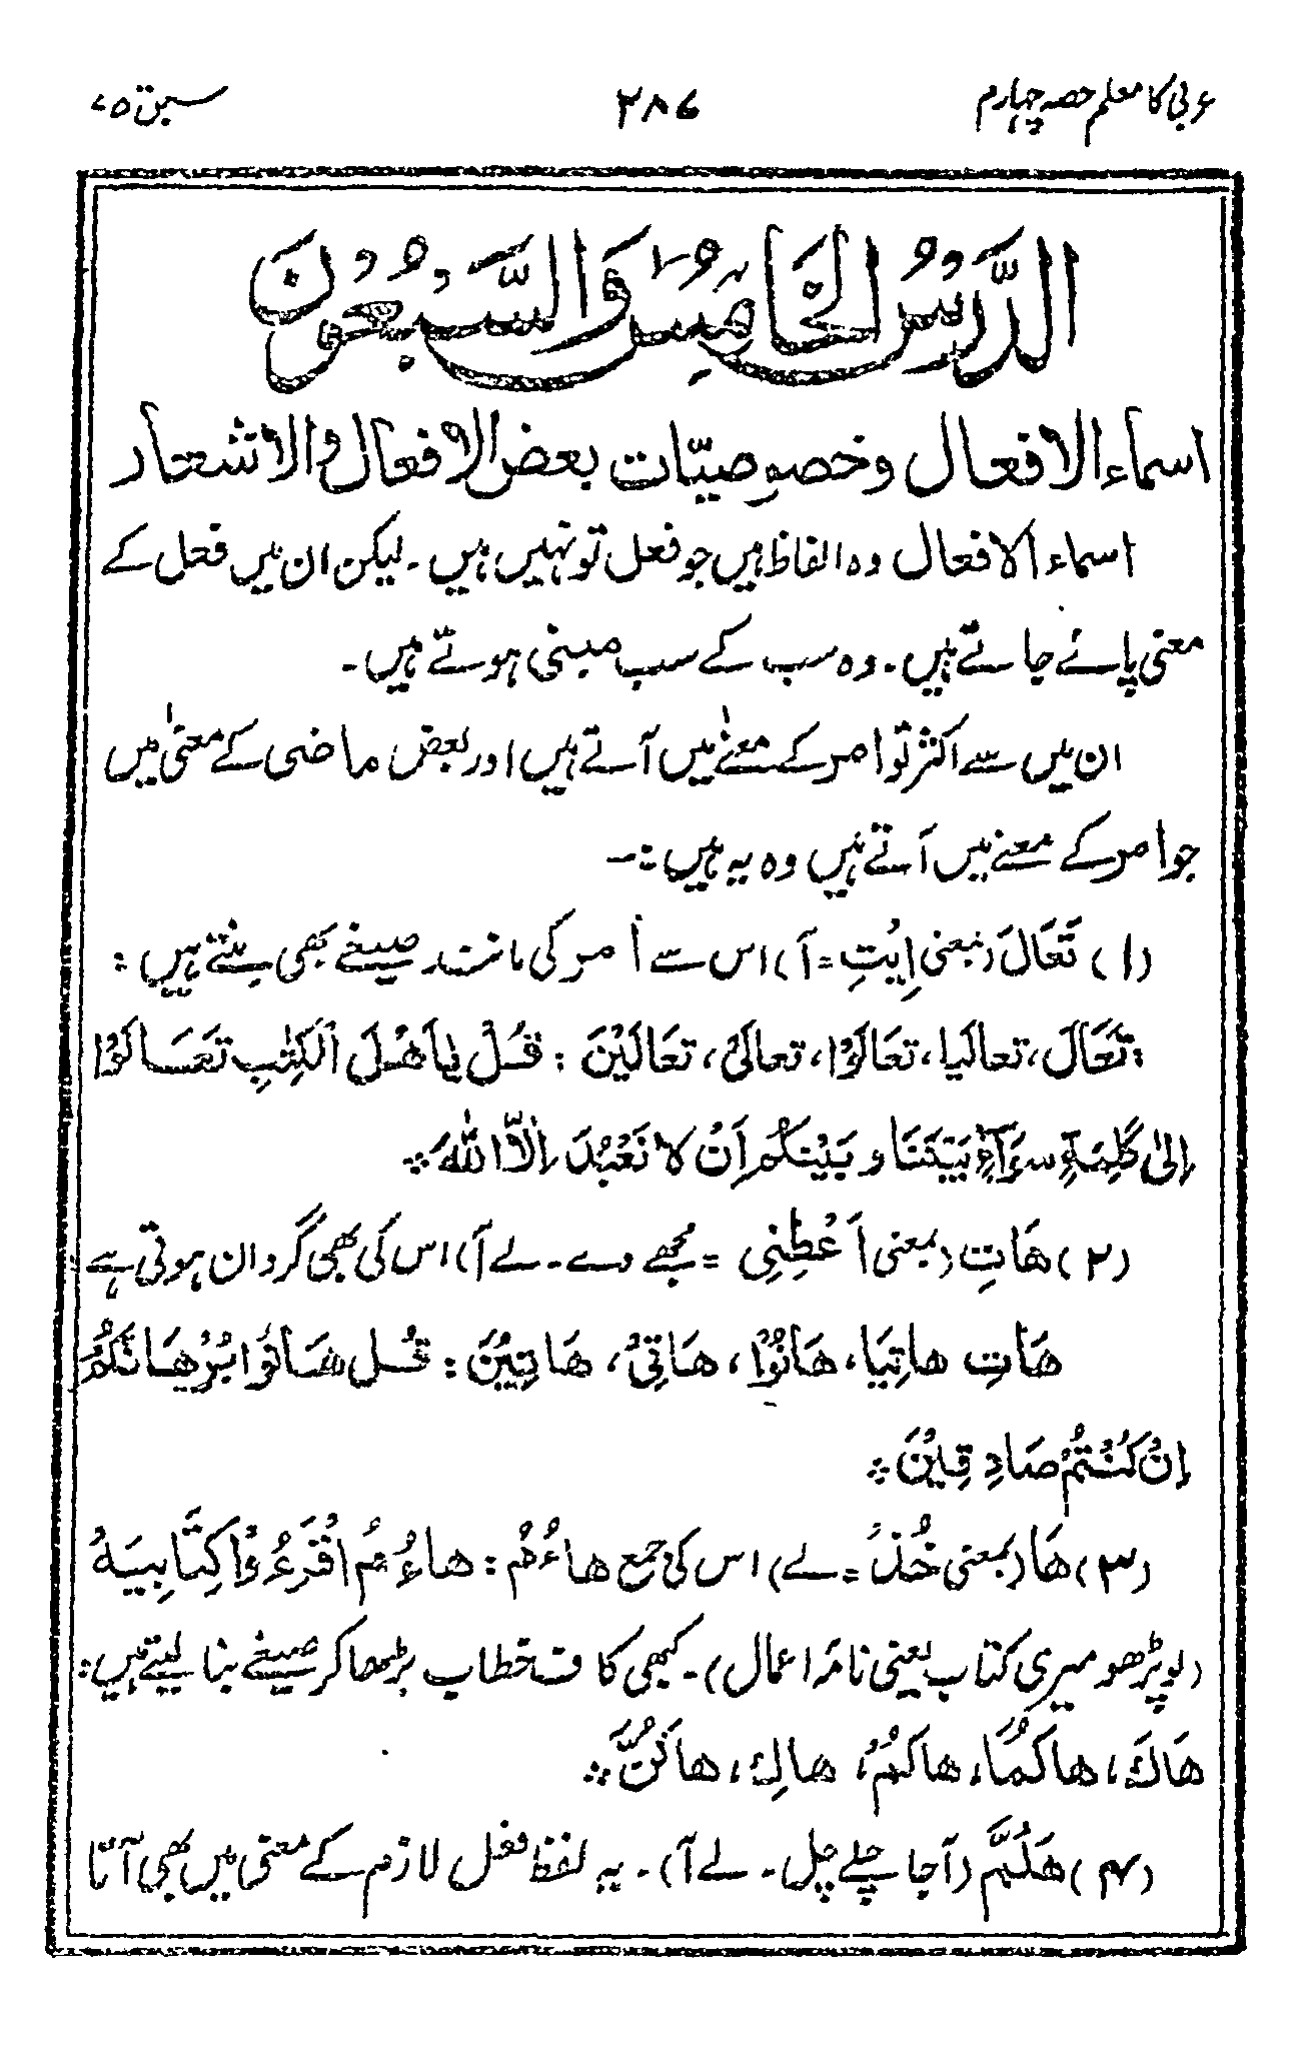 عربی کا معلم حصہ چہارم ۲۸۷ سبق ۷۵
الدَّرْسُ الْخَامِسُ وَالسَّبْعُوْنَ
اسماء الافعال وخصوصیّات بعض الافعال والاشعار
اسماء الافعال وہ الفاظ ہیں جو فعل تو نہیں ہیں۔ لیکن ان میں فعل کے
معنی پائے جاتے ہیں۔ وہ سب کے سب مبنی ہوتے ہیں۔
ان میں سے اکثر تو امر کے معنےٰ میں آتے ہیں اور بعض ماضی کے معنیٰ میں
جو امر کے معنے میں آتے ہیں وہ یہ ہیں :–
(۱) تَعَالَ (بمعنی اِیْتِ = آ) اس سے امر کی مانند صیغے بھی بنتے ہیں :
تَعَالَ، تعالَیا، تَعَالَوْا، تعالَیْ، تعَالَیْنَ : قُلْ یٰاَھْلَ الْکِتٰبِ تَعَالَوْا
اِلیٰ کَلِمَةٍ سَوَآءٍ بَیْنَنَا و بَیْنَکُمْ اَنْ لَا نَعْبُدَ اِلَّا اللهَ ⁘
(۲) ھَاتِ (بمعنی اَعْطِنِی = مجھے دے۔ لے آ) اس کی بھی گردان ہوتی ہے
ھَاتِ ھاتِیَا، ھَاتُوْا، ھَاتِیْ، ھَاتِیْنَ : قُل ھَاتُوْا بُرْھَانَکُمْ
اِنْ کُنْتُمْ صَادِقِیْنَ ⁘
(۳) ھَا (بمعنی خُذْ = لے) اس کی جمع ھاءُمُ : ھاءُمُ اقْرَءُوْا کِتَابِیَہْ
(لو پڑھو میری کتاب یعنی نامۂ اعمال)۔ کبھی کاف خطاب بڑھا کر صیغے بنا لیتے ہیں:
ھَاكَ، ھاکُمَا، ھاکُمْ، ھاكِ، ھاکُنَّ ⁘
(۴) ھَلُمَّ (آجا چلے چل۔ لے آ)۔ یہ لفظ فعل لازم کے معنی میں بھی آتا